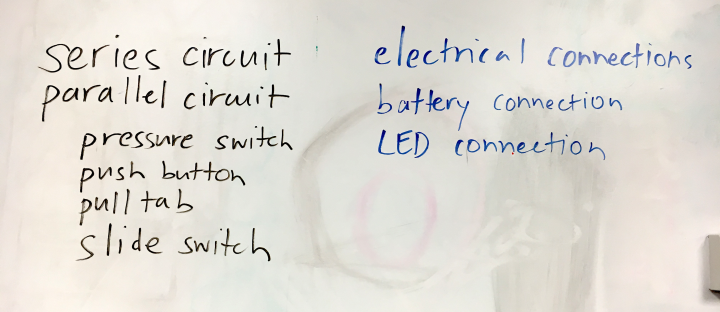 series circuit
parallel circuit
pressure switch
push button
pull tab
slide switch
electrical connections
battery connection
LED connection